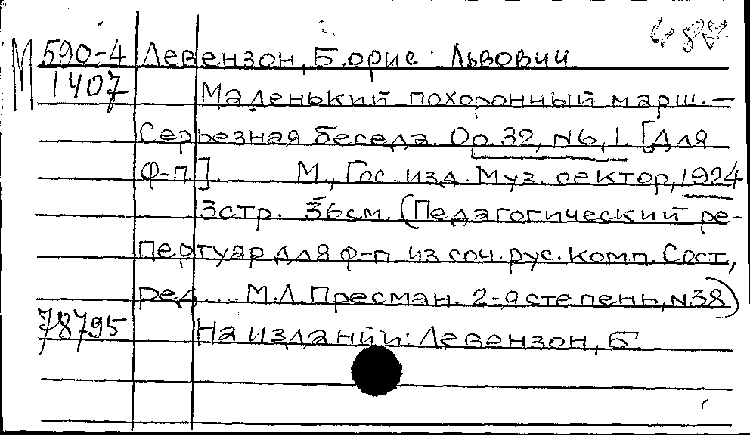 М 590-4 Левензон, Борис Львович
1407
Маленький похоронный марш. —
Серьезная беседа. Ор.32, N6,1. [Для
ф-п.] М., Гос. изд. Муз. сектор, 1924
3стр. 36см. (Педагогический ре-
пертуар для ф-п. из соч. рус. комп. Сост.,
ред. ... М.Л. Пресман. 2-я степень, N38)
78795 На издании: Левензон, Б.